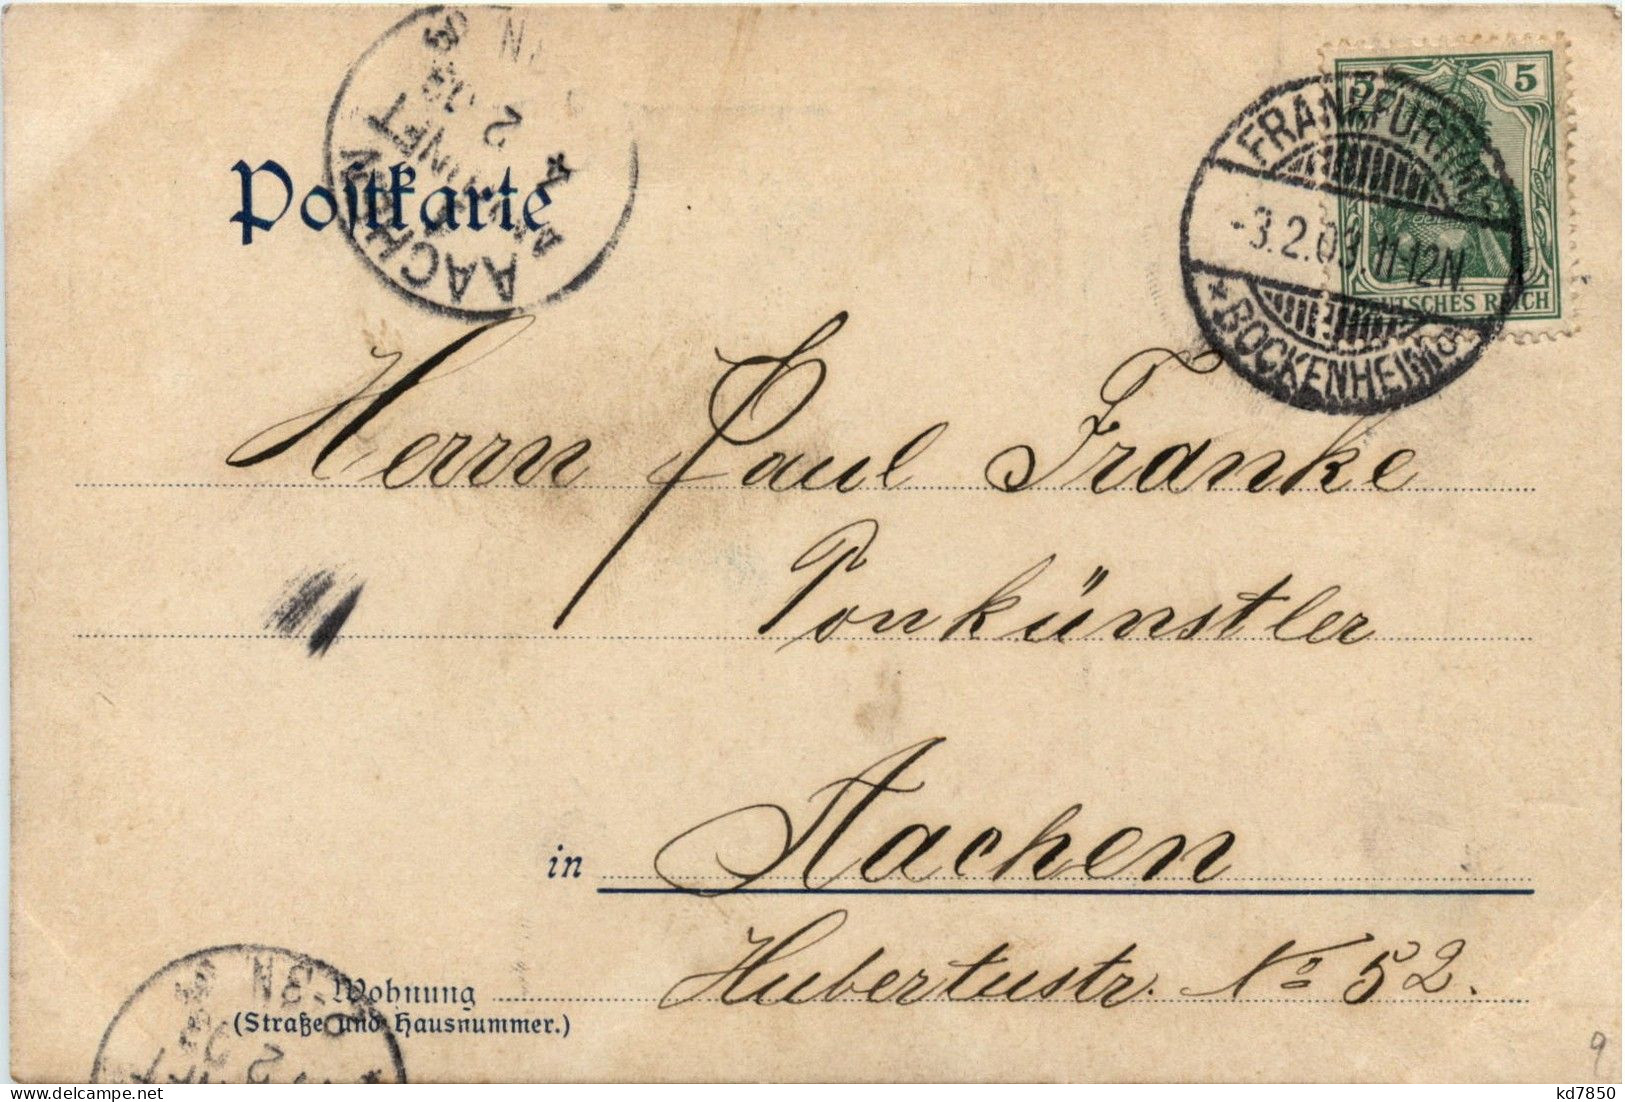 5 5
DEUTSCHES REICH
FRANKFURT
-3.2.03.11-12N.
* BOCKENHEIM
AACHEN
Postkarte
Herrn Paul Franke
Tonkünstler
in Aachen
Wohnung Hubertustr. No 52.
(Straße und Hausnummer.)
9
kd7850